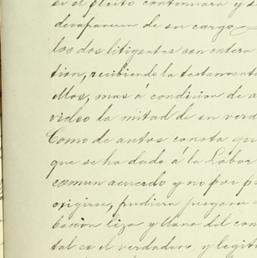 se el pleito continuara y s
desaparecen de su cargo
los dos litigantes son entera
tion, recibiendo la testamenta
ellos, mas á condicion de a
video la mitad de su verd
Como de autos consta que
que se ha dado á la labor
comun acuerdo y no por p
exigirse, pudiera pregara
liza y llana del con
tal es el verdadero, y legit